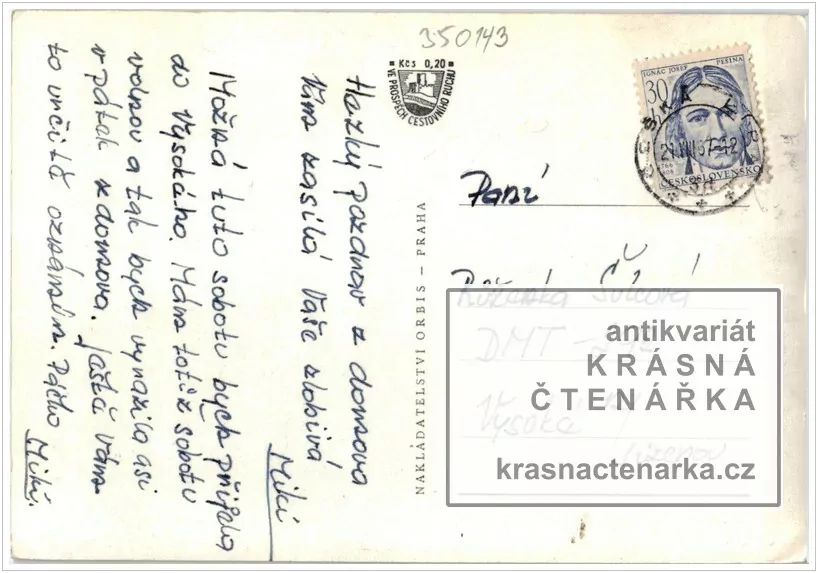 350143
Kčs 0,20
VE PROSPĚCH CESTOVNÍHO RUCHU
IGNÁC JOSEF PEŠINA
30
ČESKOSLOVENSKO
Hezký pozdrav z domova
Vám zasílá Vaše zlobivá
Miki
Možná tuto sobotu bych přijela
do Vysokého. Mám totiž sobotu
volnou a tak bych vyrazila asi
v pátek z domova. Ještě Vám
to určitě oznámím.
Miki.
NAKLADATELSTVÍ ORBIS – PRAHA
Paní
Růženka
DMT
Vysoké
antikvariát
KRÁSNÁ
ČTENÁŘKA
krasnactenarka.cz